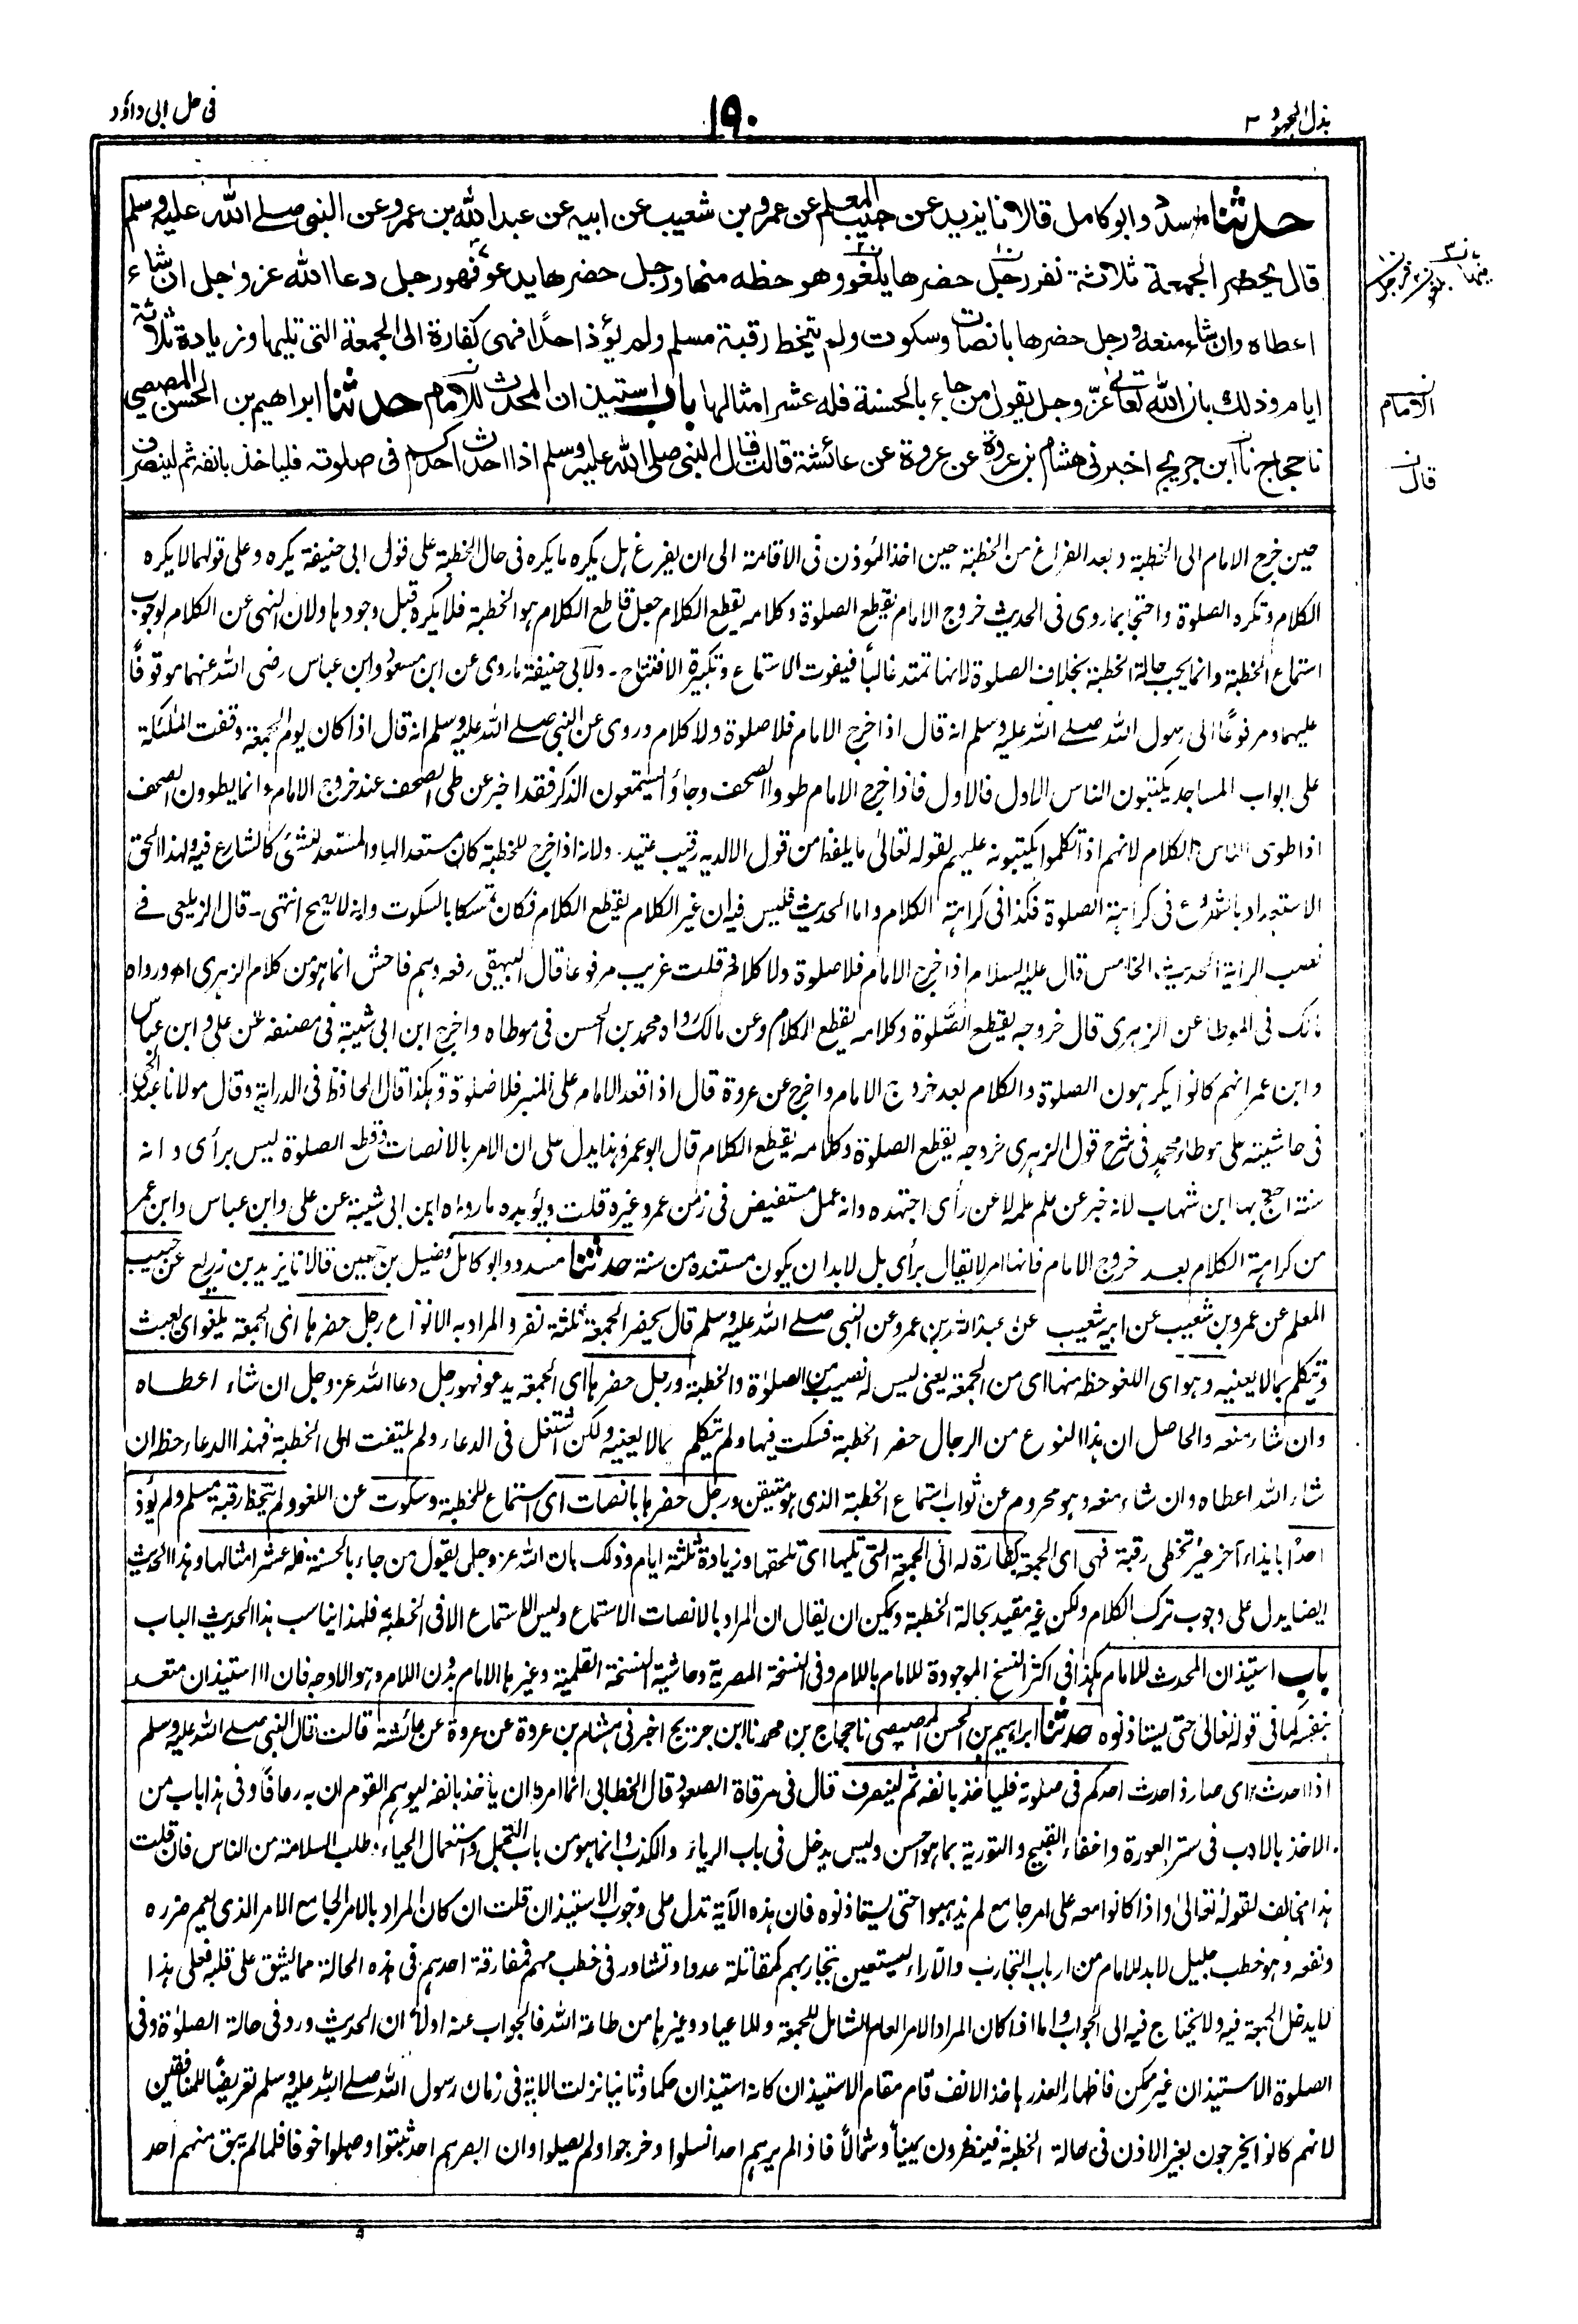 بذل المجهود ٢
١٩٠
فی حل ابی داؤد
حدثنا مسدد وابو کامل قالا نا یزید عن حبیب المعلم عن عمرو بن شعیب عن ابیه عن عبد الله بن عمرو عن النبی صلے الله علیه وسلم
قال یحضر الجمعة ثلاثة نفر رجل حضرها یلغو وهو حظه منها ورجل حضرها یدعو فهو رجل دعا الله عز وجل ان شاء
اعطاه وان شاء منعه ورجل حضرها بانصات وسکوت ولم یتخط رقبة مسلم ولم یؤذ احدًا فهی کفارة الی الجمعة التی تلیها وزیادة ثلاثة
ایام وذلك بان الله تعالی عزّ وجل یقول من جاء بالحسنة فله عشر امثالها باب استیذان المحدث للامام حدثنا ابراهیم بن الحسن المصیصی
نا حجاج نا ابن جریج اخبرنی هشام بن عروة عن عروة عن عائشة قالت قال النبی صلی الله علیه وسلم اذا احدث احدکم فی صلوته فلیاخذ بانفه ثم لینصرف
الامام
قال
حین خرج الامام الی الخطبة وبعد الفراغ من الخطبة حین اخذ المؤذن فی الاقامة الی ان یفرغ ہل یکرہ ما یکرہ فی حال الخطبة علی قول ابی حنیفة یکرہ وعلی قولہما لا یکرہ
الکلام وتکرہ الصلوة واحتجا بما روی فی الحدیث خروج الامام یقطع الصلوة وکلامہ یقطع الکلام جعل قاطع الکلام ہو الخطبة فلا یکرہ قبل وجودہا ولان النہی عن الکلام لوجوب
استماع الخطبة وانما یجب حالة الخطبة بخلاف الصلوة لانہا تمتد غالباً فیفوت الاستماع وتکبیرة الافتتاح۔ ولابی حنیفة ما روی عن ابن مسعود وابن عباس رضی اللہ عنہما موقوفاً
علیہما ومرفوعاً الی رسول اللہ صلے اللہ علیہ وسلم انہ قال اذا خرج الامام فلا صلوة ولا کلام وروی عن النبی صلے اللہ علیہ وسلم انہ قال اذا کان یوم الجمعة وقفت الملئکة
علی ابواب المساجد یکتبون الناس الاول فالاول فاذا خرج الامام طووا الصحف وجاؤا یستمعون الذکر فقد اخبر عن طی الصحف عند خروج الامام وانما یطوون الصحف
اذا طوی الناس الکلام لانہم اذا تکلموا یکتبونہ علیہم لقولہ تعالیٰ ما یلفظ من قول الا لدیہ رقیب عتید۔ ولانہ اذا خرج للخطبة کان مستعدا لہا والمستعد للشئ کالشارع فیہ ولہذا الحق
الاستعداد بالشروع فی کراہة الصلوة فکذا فی کراہة الکلام واما الحدیث فلیس فیہ ان غیر الکلام یقطع الکلام فکان تمسکا بالسکوت وانہ لا یصح انتہی۔ قال الزیلعی فے
نصب الرایة الحدیث الخامس قال علیہ السلام اذا خرج الامام فلا صلوة ولا کلام قلت غریب مرفوعا قال البیہقی رفعہ وہم فاحش انما ہو من کلام الزہری اھ ورواہ
مالک فی الموطا عن الزہری قال خروجہ یقطع الصلوة وکلامہ یقطع الکلام وعن مالک رواہ محمد بن الحسن فی موطاہ واخرج ابن ابی شیبة فی مصنفہ عن علی وابن عباس
وابن عمر انہم کانوا یکرہون الصلوة والکلام بعد خروج الامام واخرج عن عروة قال اذا قعد الامام علی المنبر فلا صلوة وہکذا قال الحافظ فی الدرایة وقال مولانا عبد الحی
فی حاشیتہ علی موطاء محمد فی شرح قول الزہری خروجہ یقطع الصلوة وکلامہ یقطع الکلام قال ابو عمرو ہذا یدل علی ان الامر بالانصات وقطع الصلوة لیس برأی وانہ
سنة احتج بہا ابن شہاب لانہ خبر عن علم علمہ لا عن رأی اجتہدہ وانہ عمل مستفیض فی زمن عمر وغیرہ قلت ویؤیدہ ما رواہ ابن ابی شیبة عن علی وابن عباس وابن عمر
من کراہة الکلام بعد خروج الامام فانہا امر لا یقال برأی بل لا بد ان یکون مستندہ من سنة حدثنا مسدد وابو کامل فضیل بن حسین قالا نا یزید بن زریع عن حبیب
المعلم عن عمرو بن شعیب عن ابیہ شعیب عن عبد اللہ بن عمرو عن النبی صلے اللہ علیہ وسلم قال یحضر الجمعة ثلثة نفر والمراد بہ الانواع رجل حضرہا ای الجمعة یلغو ای یعبث
ویتکلم بمالا یعنیہ وہو ای اللغو حظہ منہا ای من الجمعة یعنی لیس لہ نصیب من الصلوٰة والخطبة ورجل حضرہا ای الجمعة یدعو فہو رجل دعا اللہ عز وجل ان شاء اعطاہ
وان شاء منعہ والحاصل ان ہذا النوع من الرجال حضر الخطبة فسکت فیہا ولم یتکلم بمالا یعنیہ ولکن اشتغل فی الدعاء ولم یلتفت الی الخطبة فہذا الدعاء حظہ ان
شاء اللہ اعطاہ وان شاء منعہ وہو محروم عن ثواب استماع الخطبة الذی ہو متیقن ورجل حضرہا بانصات ای استماع للخطبة وسکوت عن اللغو ولم یتخط رقبة مسلم ولم یؤذ
احداً بایذاء آخر غیر تخطی رقبة فہی ای الجمعة کفارة لہ الی الجمعة التی تلیہا ای تلحقہا وزیادة ثلثة ایام وذلک بان اللہ عز وجل یقول من جاء بالحسنة فلہ عشر امثالہا وہذا الحدیث
ایضا یدل علی وجوب ترک الکلام ولکن غیر مقید بحالة الخطبة ویمکن ان یقال ان المراد بالانصات الاستماع ولیس الاستماع الا فی الخطبة فلہذا یناسب ہذا الحدیث الباب
باب استیذان المحدث للامام ہکذا فی اکثر النسخ الموجودة للامام باللام وفی النسخة المصریة وحاشیة النسخة القلمیة وغیرہا الامام بدون اللام وہو الاوجہ فان الاستیذان متعد
بنفسہ کما فی قولہ تعالیٰ حتی یستاذنوہ حدثنا ابراہیم بن الحسن المصیصی نا حجاج بن محمد نا ابن جریج اخبرنی ہشام بن عروة عن عروة عن عائشة قالت قال النبی صلے اللہ علیہ وسلم
اذا احدث ای صار ذا حدث احدکم فی صلوتہ فلیأخذ بانفہ ثم لینصرف قال فی مرقاة الصعود قال الخطابی انما امرہ ان یأخذ بانفہ لیوہم القوم ان بہ رعافاً وفی ہذا باب من
الاخذ بالادب فی ستر العورة واخفاء القبیح والتوریة بما ہو احسن ولیس یدخل فی باب الریاء والکذب وانما ہو من باب التجمل واستعمال الحیاء وطلب السلامة من الناس فان قلت
ہذا مخالف لقولہ تعالیٰ واذا کانوا معہ علی امر جامع لم یذہبوا حتی یستاذنوہ فان ہذہ الآیة تدل علی وجوب الاستیذان قلت ان کان المراد بالامر الجامع الامر الذی یعم ضررہ
ونفعہ وہو خطب جلیل لا بد للامام من ارباب التجارب والآراء لیستعین بتجاربہم کمقاتلة عدو او تشاور فی خطب مہم فمفارقة احدہم فی ہذہ الحالة مما یشق علی قلبہ فعلی ہذا
لا یدخل الجمعة فیہ ولا یحتاج فیہ الی الجواب واما اذا کان المراد الامر العام الشامل للجمعة وللاعیاد وغیرہا من طاعة اللہ فالجواب عنہ اولاً ان الحدیث ورد فی حالة الصلوٰة وفی
الصلوة الاستیذان غیر ممکن فاظہار العذر باخذ الانف قام مقام الاستیذان کانہ استیذان حکما وثانیا نزلت الآیة فی زمان رسول اللہ صلے اللہ علیہ وسلم تعریضاً للمنافقین
لانہم کانوا یخرجون بغیر الاذن فی حالة الخطبة فینظرون یمیناً وشمالاً فاذا لم یرہم احد انسلوا وخرجوا ولم یصلوا وان ابصرہم احد ثبتوا وصلوا خوفا فلما لم یبق منہم احد